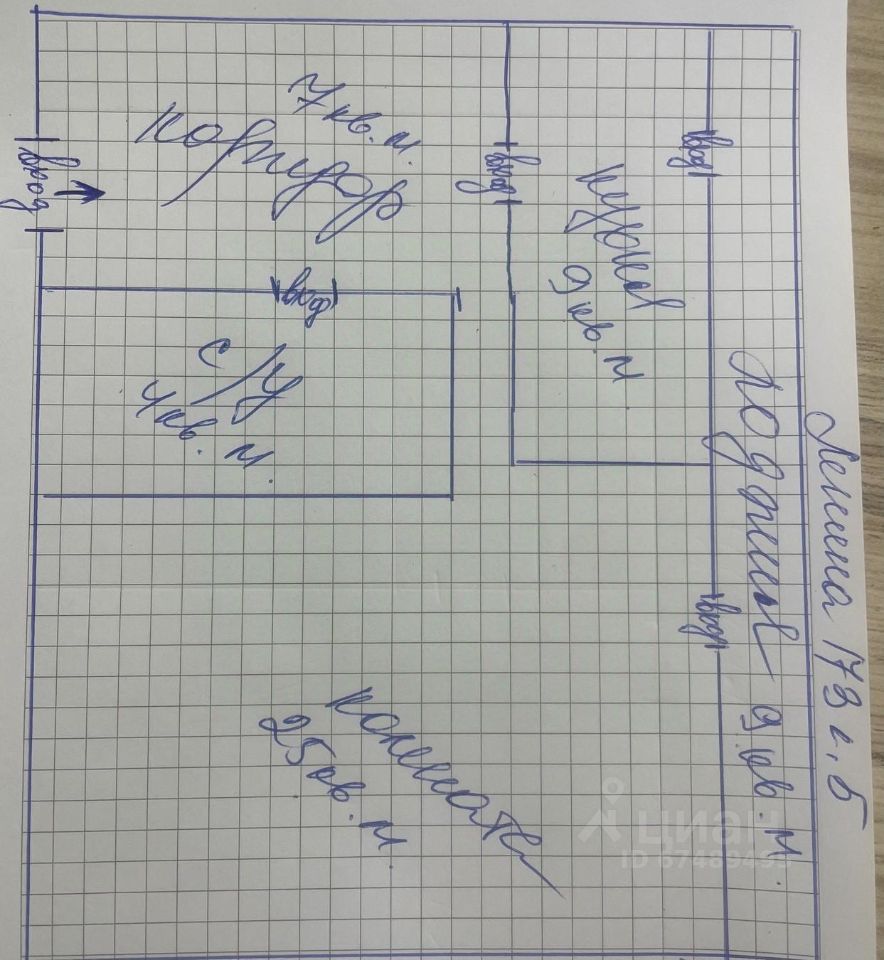 Ленина 173 г. 5
коридор
7 кв. м.
вход
вход
вход
вход
вход
кухня
9 кв. м
с/у
4 кв. м.
лоджия 9 кв. м.
комната
25 кв. м.
циан